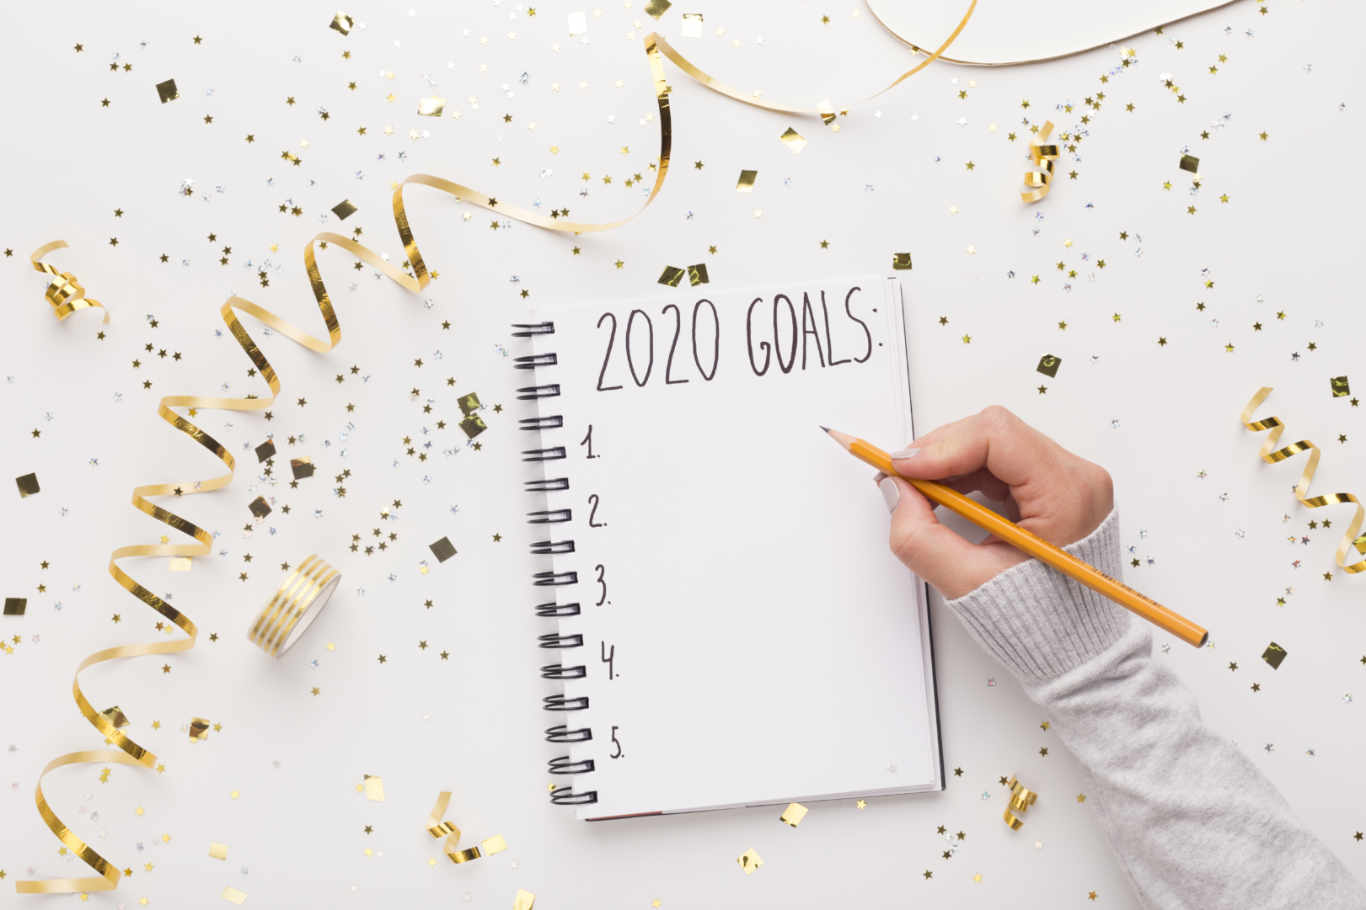 2020 GOALS:
1.
2.
3.
4.
5.